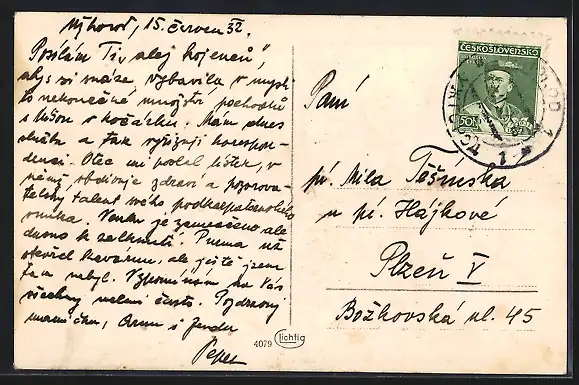 Užhorod, 15. červen 32.
Posílám Ti „alej kojenců",
abys si snáze vybavila v mysli
to nekonečné množství pochodů
s Lidou v kočárku. Mám dnes
službu a tak vyřizuji korespon-
denci. Otec mi poslal lístek, v
němž obdivuje zdraví a pozorova-
telský talent svého podkarpatoruského
Venku je zamračeno, ale
dusno k zalknutí. už
otevřel kavárnu, ale ještě jsem
tam nebyl. Vzpomínám na Vás
všechny velmi často. Pozdravuj
maminku, i Jendu
Pepek
ČESKOSLOVENSKO
50h
1
Paní
pí. Mila Těšínská
u pí. Hájkové
Plzeň V
Božkovská ul. 45
4079 Lichtig